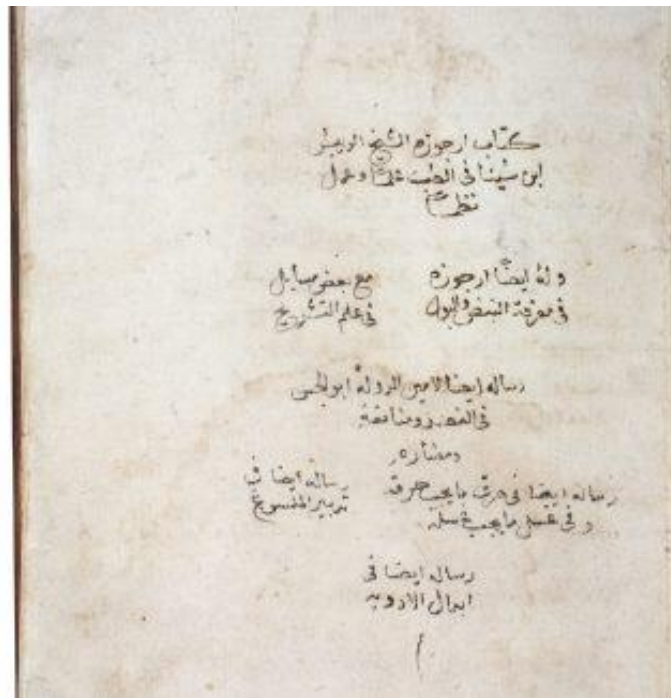 كتاب ارجوزه الشيخ الريس
ابن سينا في الطب علم وعمل
نظم
وله ايضا ارجوزه
في معرفة النبض والبول
مع بعض مسايل
في علم التشريح
رساله ايضا لامين الدوله ابو الحسن
في الفصد ومنافعه
ومضاره
رساله ايضا في حرق ما يجب حرقه
و في غسل ما يجب غسله
رساله ايضا في
تدبير
رساله ايضا في
ابدال الادويه